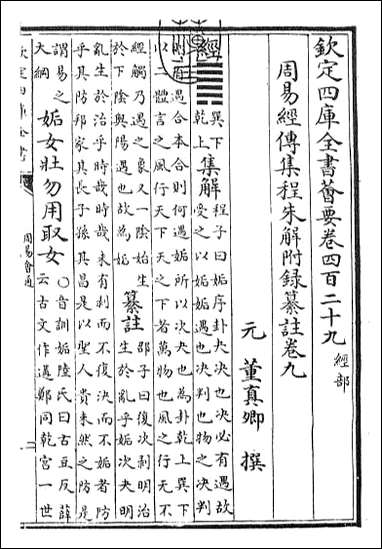 欽定四庫全書薈要卷四百二十九 經部
周易經傳集程朱解附録纂註卷九
元 董真卿 撰
經 ䷫ 巽下
乾上
集解
程子曰姤序卦夬決也決必有遇故
受之以姤姤遇也決判也物之決判
則有遇合本合則何遇姤所以次夬也為卦乾上巽下
以二體言之風行天下天之下者萬物也風之行无不
經觸乃遇之象又一陰始生
於下陰與陽遇也故為姤
纂註
邵子曰復次剥明治
生於亂乎姤次夬明
亂生於治乎時哉時哉未有剥而不復決而不姤者防
乎其防邦家其長子孫其昌是以聖人貴未然之防是
謂易之
大綱
姤女壯勿用取女
○音訓姤陸氏曰古豆反薛
云古文作遘鄭同乾宮一世
欽定四庫全書
周易會通